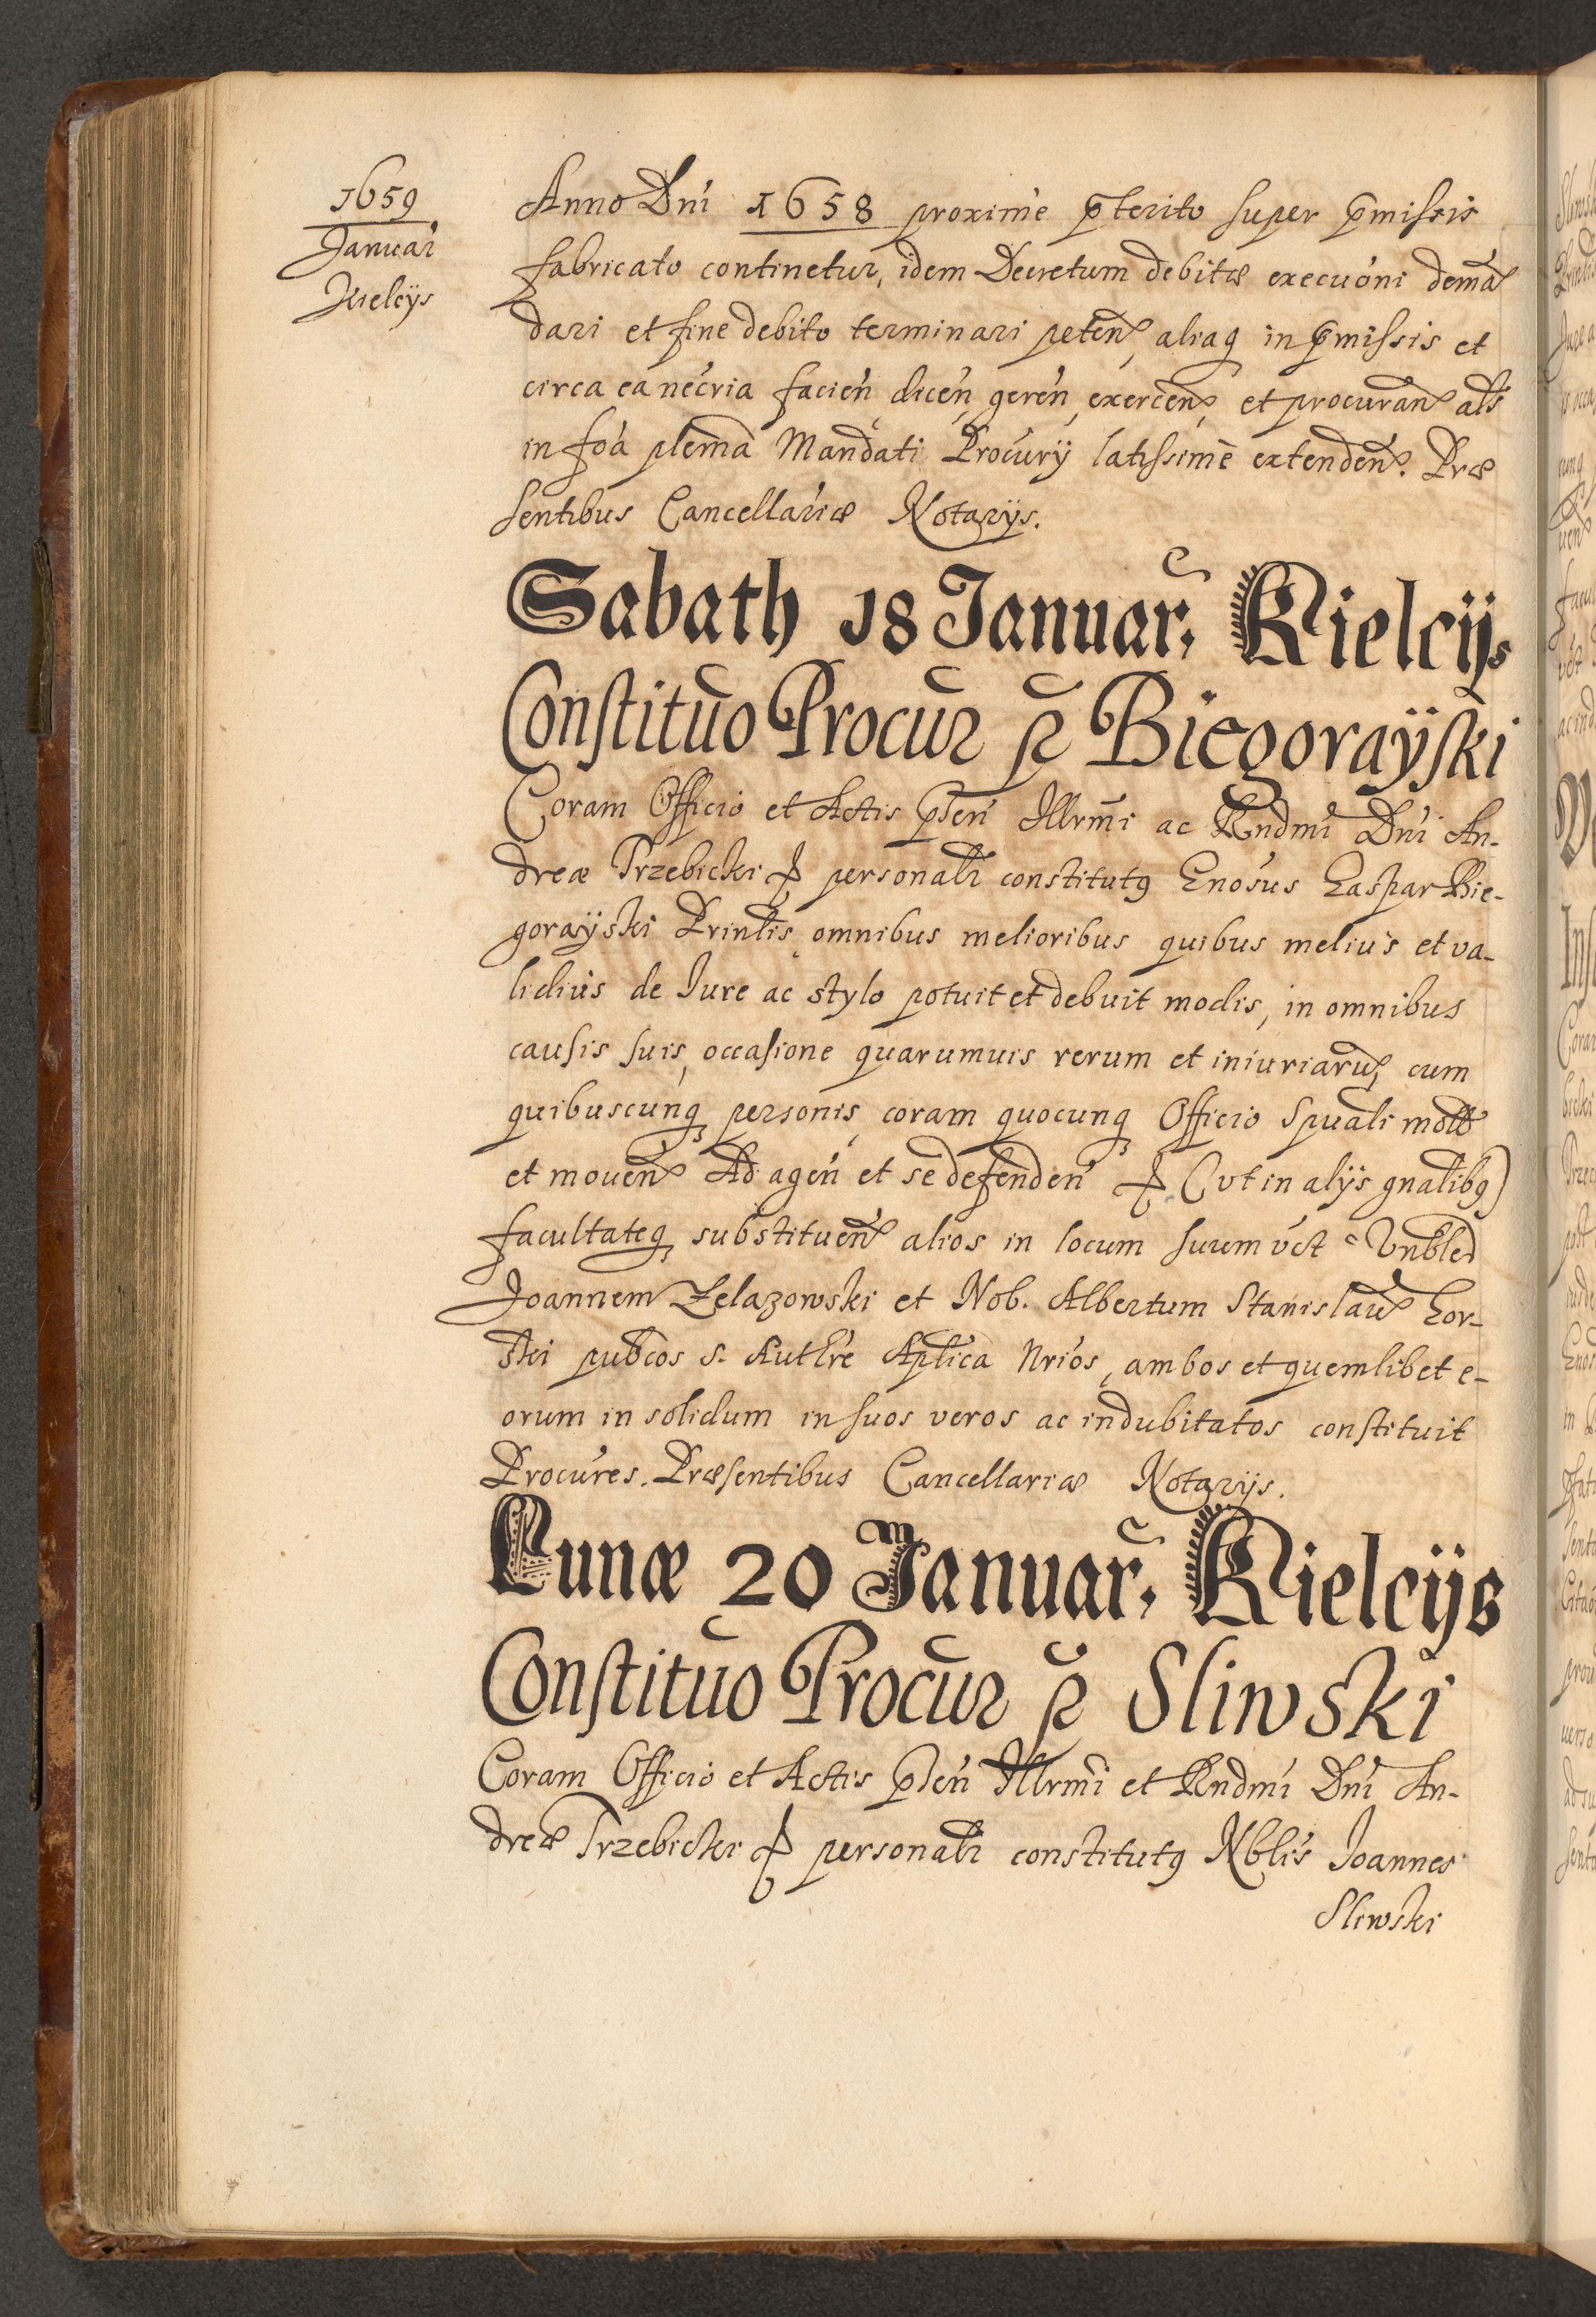 1659
Januar
Kielcÿs
Anno Dni 1658 proxime p̄terito super p̄missis
fabricato continetur, idem Decretum debitæ execuoni demā
dari et fine debito terminari peten, aliaq in p̄missis et
circa ea necria facien dicen, geren, exercen, et procuran als
in foa plema Mandati Procury latissime extenden. Præ
sentibus Cancellariæ Notarÿs.
Sabath 18 Januar, Kielcÿs
Constituo Procur p̄ Biegoraÿski
Coram Officio et Actis p̄sen Illrmi ac Rndmi Dni An-
dreæ Trzebicki personalr constitutq Gnosus Gaspar Bie-
goraÿski Prinlis omnibus melioribus quibus melius et va-
lidius de Jure ac stylo potuit et debuit modis, in omnibus
causis suis, occasione quarumuis rerum et iniuriarū, cum
quibuscunq personis, coram quocunq Officio Spuali motis
et mouen Ad agen et se defenden (vt in alÿs gnalibq)
facultateq substituen alios in locum suum vct Vnbled
Joannem Zelazowski et Nob. Albertum Stanislau Gor-
ski pubcos S. Authre Aplica Nrios, ambos et quemlibet e-
orum in solidum in suos veros ac indubitatos constituit
Procures. Præsentibus Cancellariæ Notarÿs.
Lunæ 20 Januar, Kielcÿs
Constituo Procur p̄ Sliwski
Coram Officio et Actis p̄sen Illrmi et Rndmi Dni An-
dreæ Trzebicki personalr constitutq Nblis Joannes
Sliwski